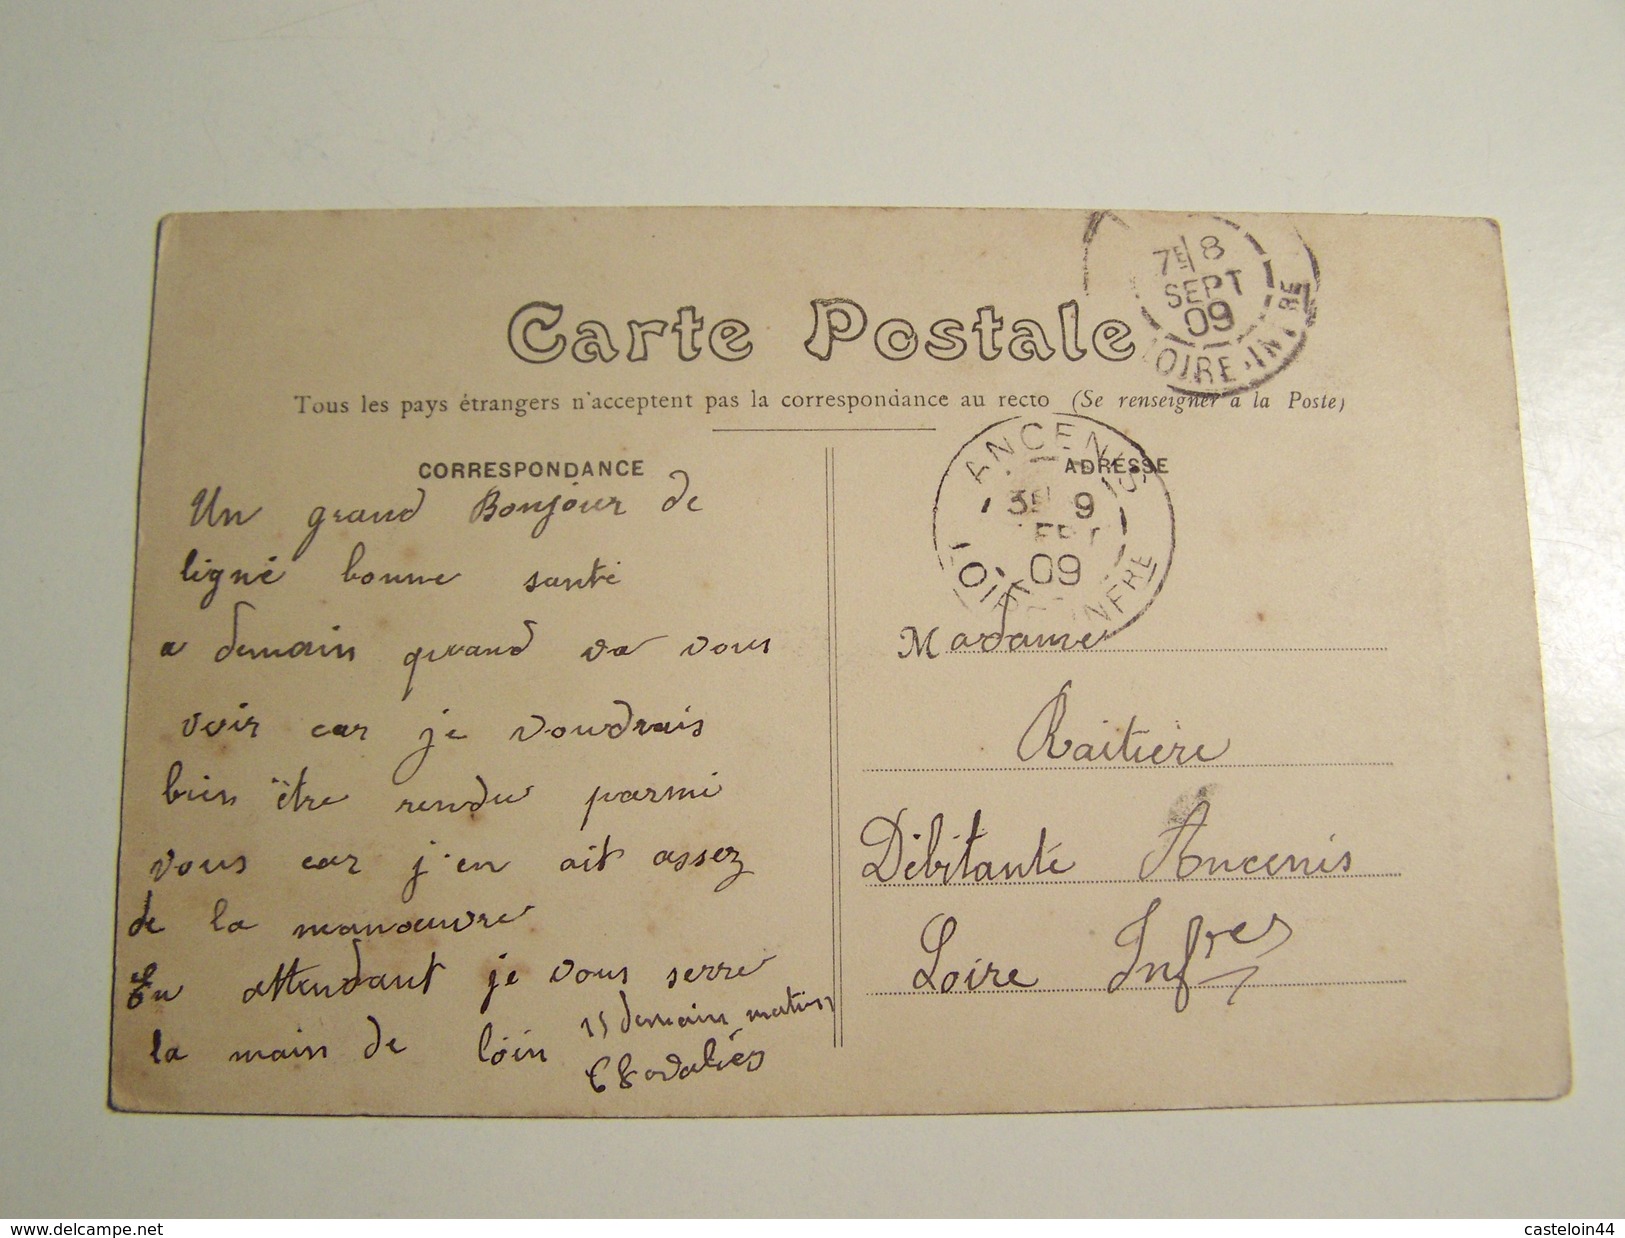 7E 8
SEPT
09
LOIRE-INFRE
Carte Postale
Tous les pays étrangers n'acceptent pas la correspondance au recto (Se renseigner à la Poste)
CORRESPONDANCE
Un grand Bonjour de
ligné bonne santé
a demain quand va vous
voir car je voudrais
bien être rendu parmi
vous car j'en ait assez
de la manoeuvre
En attendant je vous serre
la main de loin
demain matin
ADRESSE
ANCENIS
3E 9
SEPT
09
LOIRE INFRE
Madame
Raitiere
Débitante Ancenis
Loire Infres
delcampe.net
casteloin44